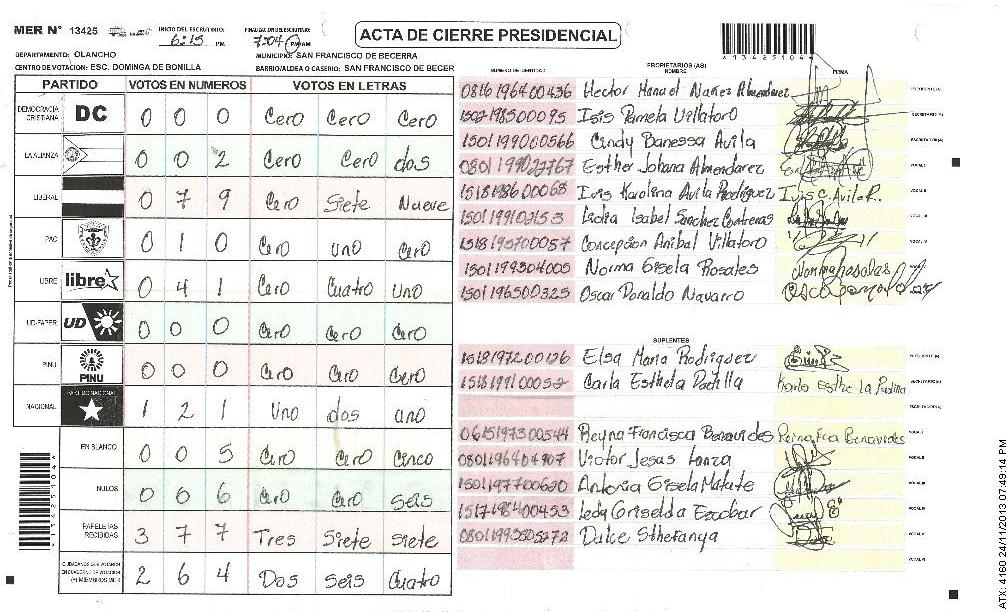 MER N° 13425
INICIO DEL ESCRUTINIO: 6:15 PM
FINALIZACION DEL ESCRUTINIO: 7:04 PM AM
ACTA DE CIERRE PRESIDENCIAL
*13425104*
DEPARTAMENTO: OLANCHO
MUNICIPIO: SAN FRANCISCO DE BECERRA
CENTRO DE VOTACION: ESC. DOMINGA DE BONILLA
BARRIO/ALDEA O CASERIO: SAN FRANCISCO DE BECER
PARTIDO VOTOS EN NUMEROS VOTOS EN LETRAS
DEMOCRACIA CRISTIANA DC 0 0 0 Cero Cero Cero
LA ALIANZA 0 0 2 Cero Cero dos
LIBERAL 0 7 9 Cero Siete Nueve
PAC 0 1 0 Cero uno Cero
LIBRE libre 0 4 1 Cero Cuatro uno
UD-FAPER UD 0 0 0 Cero Cero Cero
PINU PINU 0 0 0 Cero Cero Cero
NACIONAL PARTIDO NACIONAL 1 2 1 Uno dos uno
EN BLANCO 0 0 5 Cero Cero Cinco
NULOS 0 0 6 Cero Cero seis
PAPELETAS RECIBIDAS 3 7 7 Tres Siete siete
CIUDADANOS QUE VOTARON EN CUADERNO DE VOTACION (+) MIEMBROS MER 2 6 4 Dos seis Cuatro
*13425104*
NUMERO DE IDENTIDAD PROPIETARIOS (AS) NOMBRE FIRMA
0816196400436 Hector Manuel Nuñez Almendarez PRESIDENTE(A)
1502198500095 Isis Pamela Villatoro SECRETARIO(A)
1501199000566 Cindy Banessa Avila ESCRUTADOR(A)
Esther Johana Almendarez VOCAL I
1518198600068 Ivis Karolina Avila Rodriguez Ivis C. Avila R. VOCAL II
Isabel Sanchez Contreras VOCAL III
1518195700057 Concepción Anibal Villatoro VOCAL IV
Norma Gisela Rosales
1501196500325 Oscar Donaldo Navarro
SUPLENTES
1518197200126 Elsa Maria Rodriguez PRESIDENTE(A)
Carla Esthela Padilla Karla Esthe La Padilla SECRETARIO(A)
ESCRUTADOR(A)
0615197300544 Reyna Francisca Benavides Reina Fca Benavides VOCAL I
Victor Jesus Lanza VOCAL II
1501197700620 Antonia Gisela Matute VOCAL III
1517198400453 Ledy Griselda Escobar VOCAL IV
0801199305272 Dulce Sthefanya VOCAL V
VOCAL VI
ATX: 4160 24/11/2013 07:49:14 PM